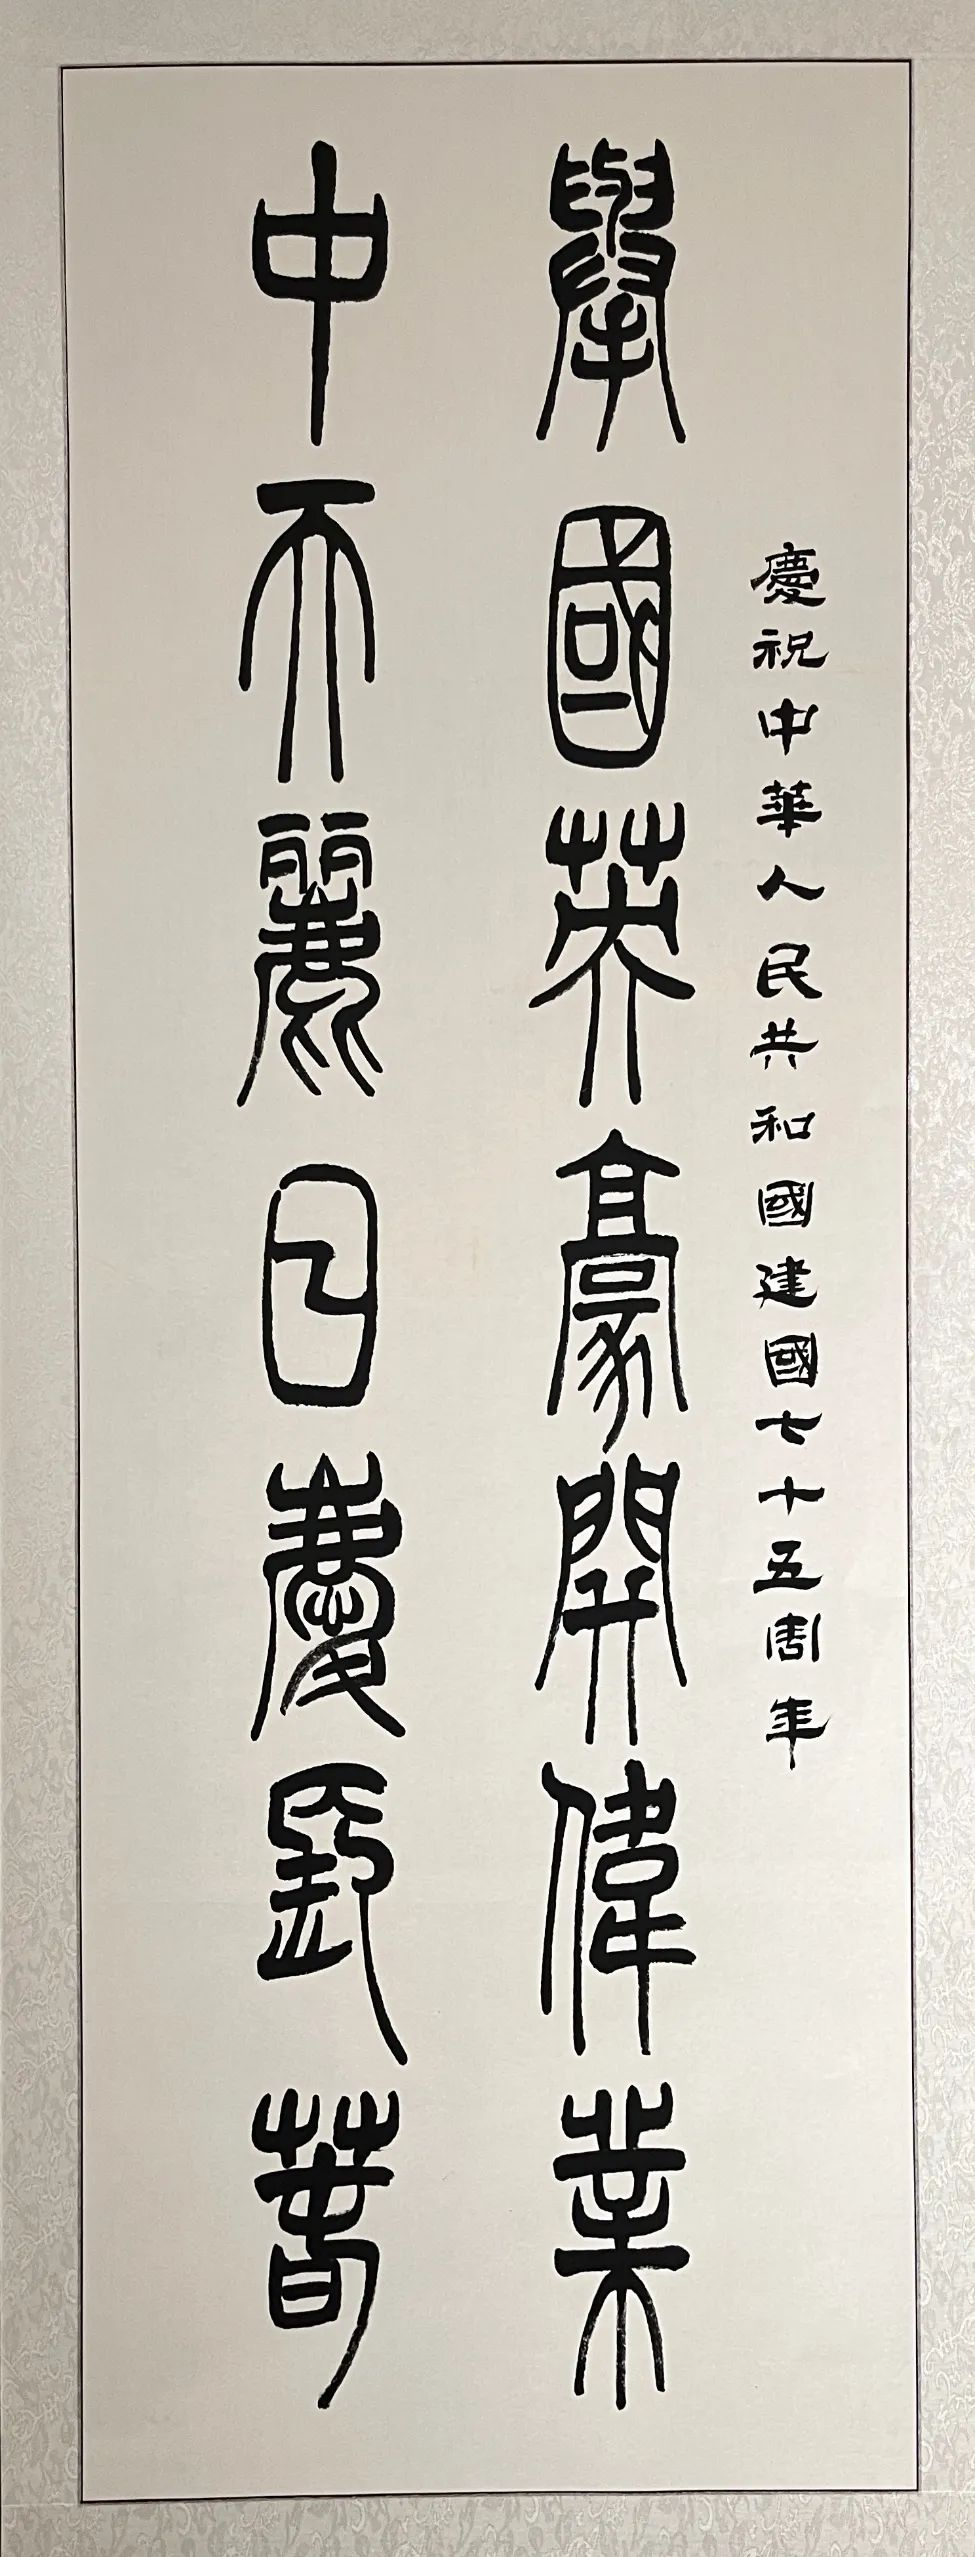 慶祝中華人民共和國建國七十五周年
舉國英豪開偉業
中天麗日慶春